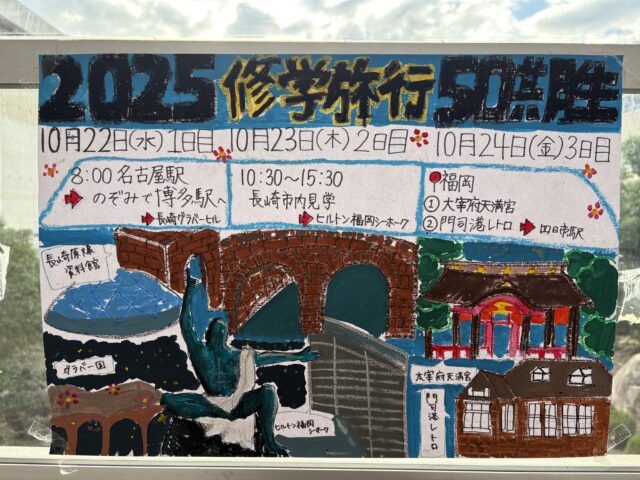 2025 修学旅行 50点勝
10月22日(水)1日目
8:00 名古屋駅
のぞみで博多駅へ
長崎グラバーヒル
10月23日(木)2日目
10:30～15:30
長崎市内見学
ヒルトン福岡シーホーク
10月24日(金)3日目
福岡
① 大宰府天満宮
② 門司港レトロ
四日市駅
長崎原爆
資料館
グラバー園
ヒルトン福岡
シーホーク
太宰府天満宮
門司港レトロ